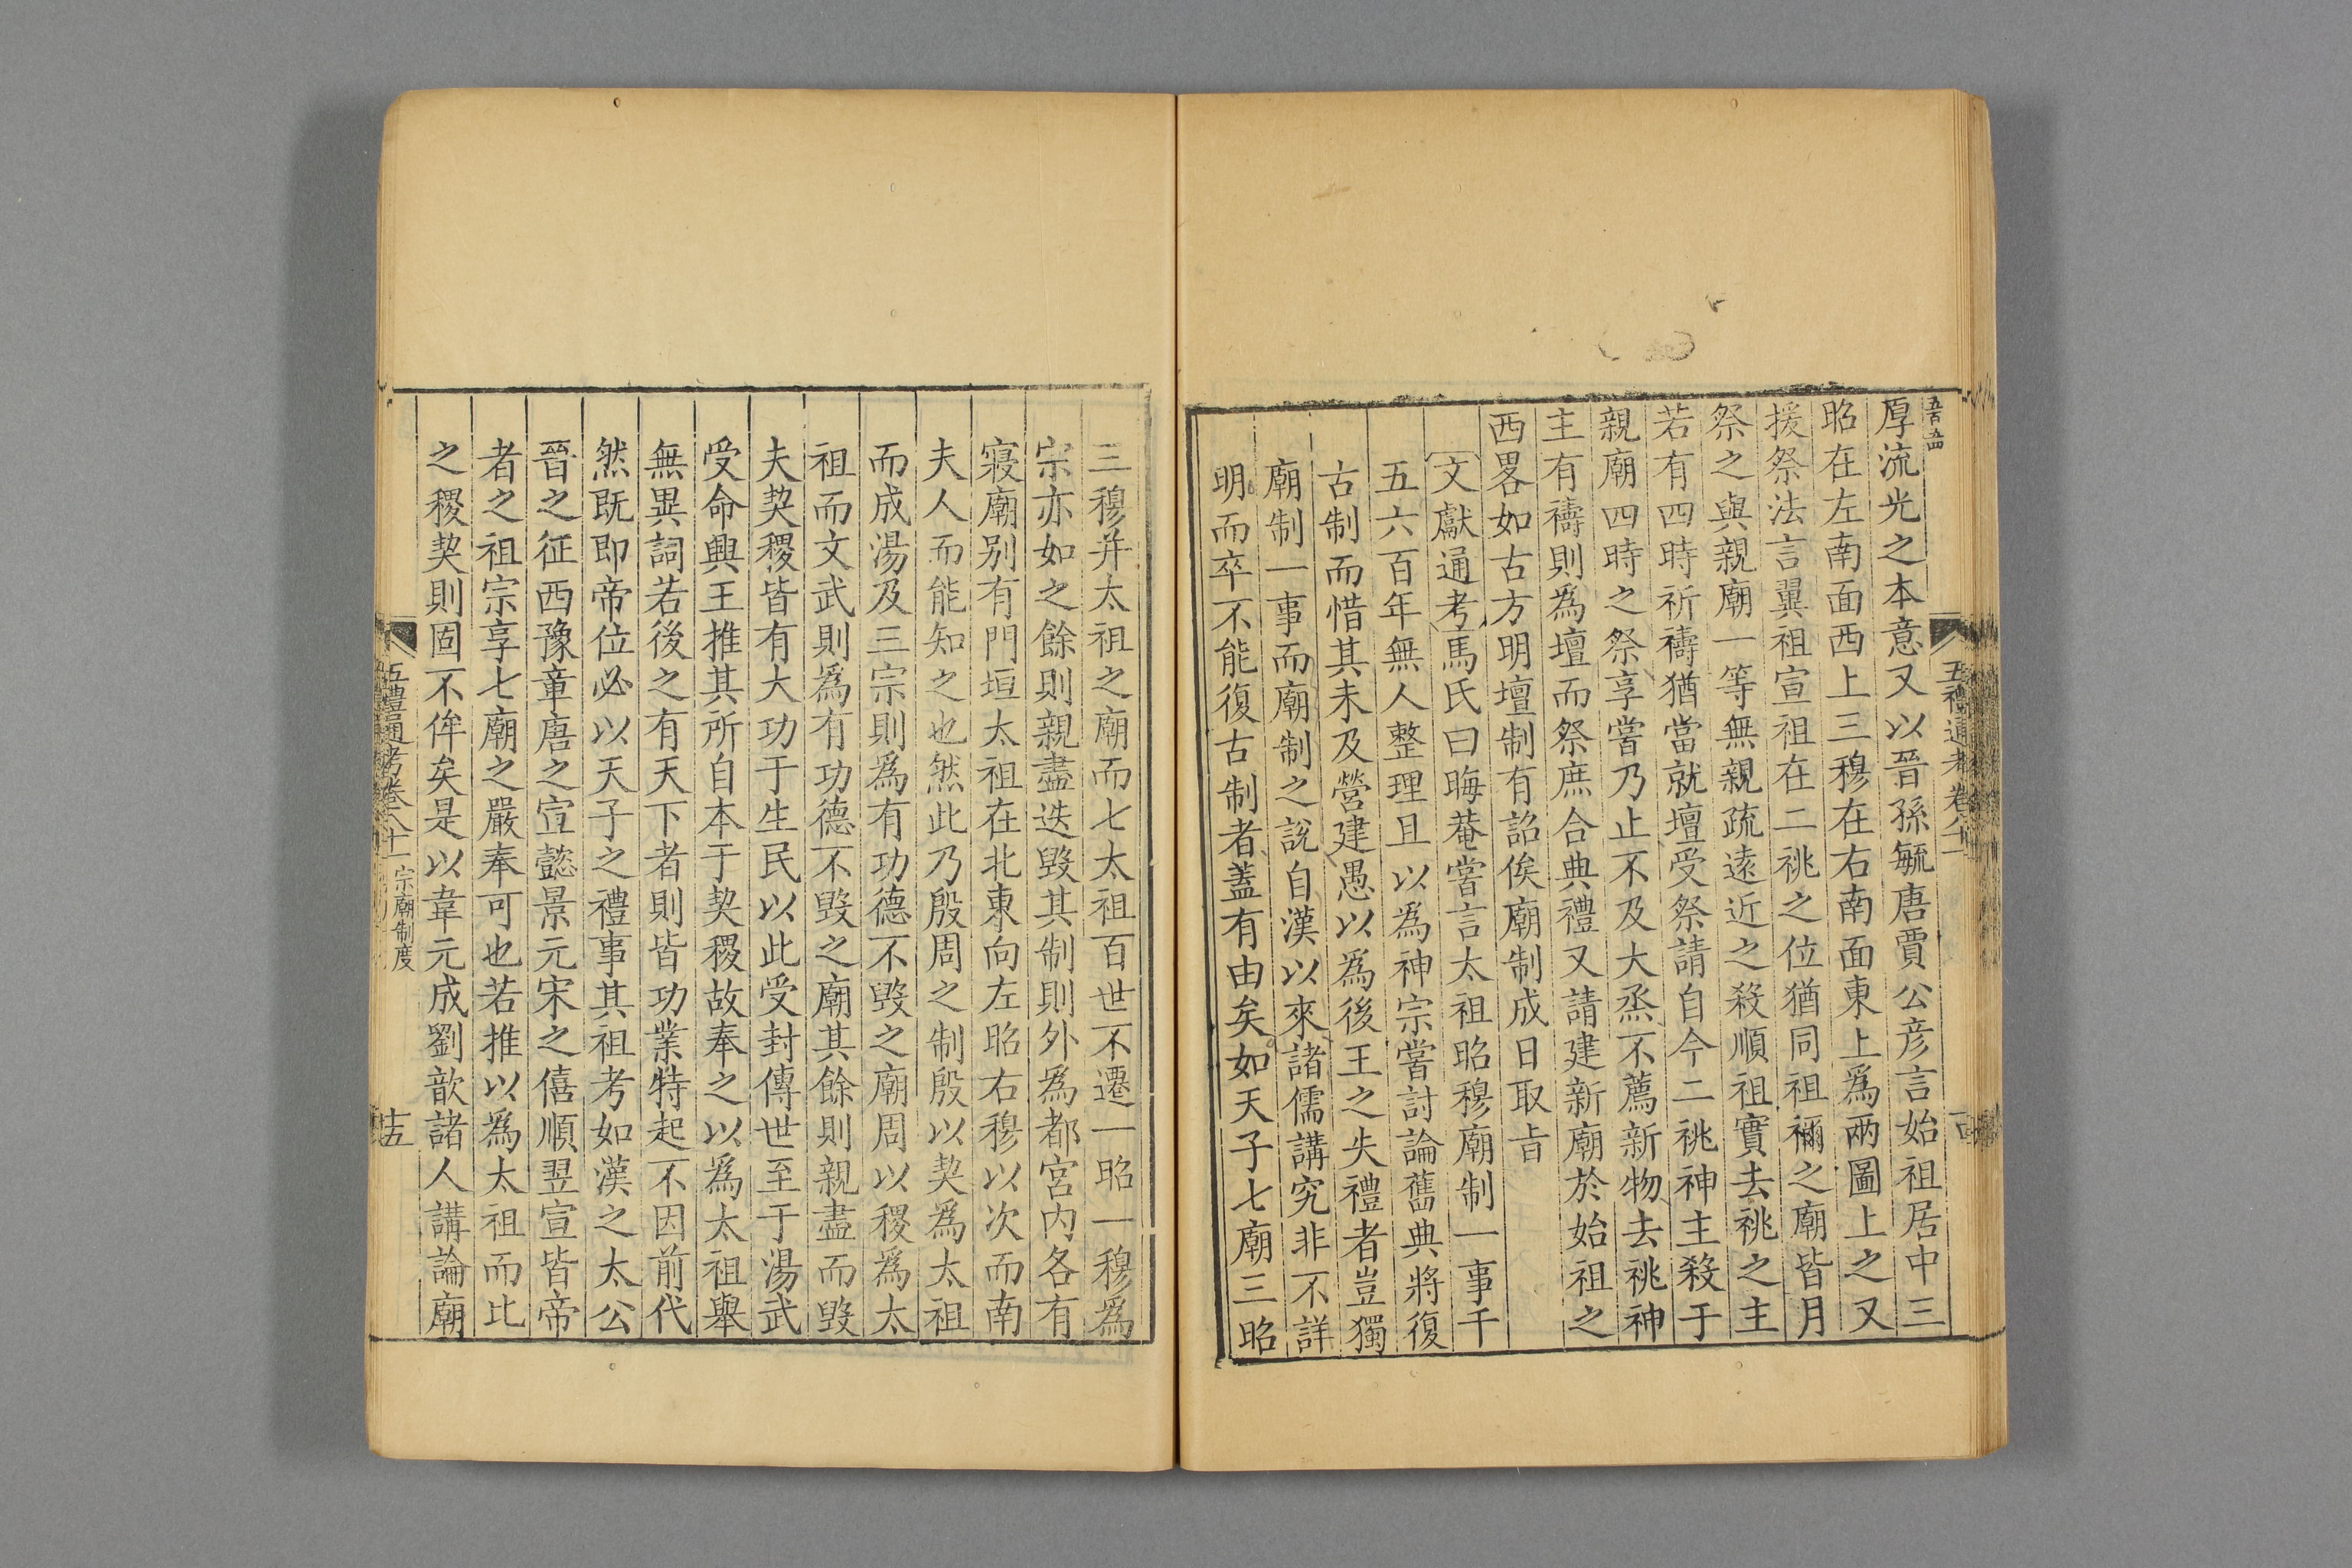 厚流光之本意又以晉孫毓唐賈公彦言始祖居中三
昭在左南面西上三穆在右南面東上爲兩圖上之又
援祭法言翼祖宣祖在二祧之位猶同祖禰之廟皆月
祭之與親廟一等無親疏逺近之殺順祖實去祧之主
若有四時祈禱猶當就壇受祭請自今二祧神主殺于
親廟四時之祭享嘗乃止不及大烝不薦新物去祧神
主有禱則爲壇而祭庶合典禮又請建新廟於始祖之
西畧如古方明壇制有詔俟廟制成日取㫖
文獻通考馬氏曰晦菴嘗言太祖昭穆廟制一事千
五六百年無人整理且以爲神宗嘗討論舊典將復
古制而惜其未及營建愚以爲後王之失禮者豈獨
廟制一事而廟制之說自漢以來諸儒講究非不詳
明而卒不能復古制者蓋有由矣如天子七廟三昭
三穆并太祖之廟而七太祖百世不遷一昭一穆爲
宗亦如之餘則親盡迭毀其制則外爲都宮內各有
寢廟别有門垣太祖在北東向左昭右穆以次而南
夫人而能知之也然此乃殷周之制殷以契爲太祖
而成湯及三宗則爲有功德不毀之廟周以稷爲太
祖而文武則爲有功德不毀之廟其餘則親盡而毀
夫契稷皆有大功于生民以此受封傳世至于湯武
受命興王推其所自本于契稷故奉之以爲太祖舉
無異詞若後之有天下者則皆功業特起不因前代
然既即帝位必以天子之禮事其祖考如漢之太公
晉之征西豫章唐之宣懿景元宋之僖順翌宣皆帝
者之祖宗享七廟之嚴奉可也若推以爲太祖而比
之稷契則固不侔矣是以韋元成劉歆諸人講論廟
五禮通考卷八十一 宗廟制度
十五